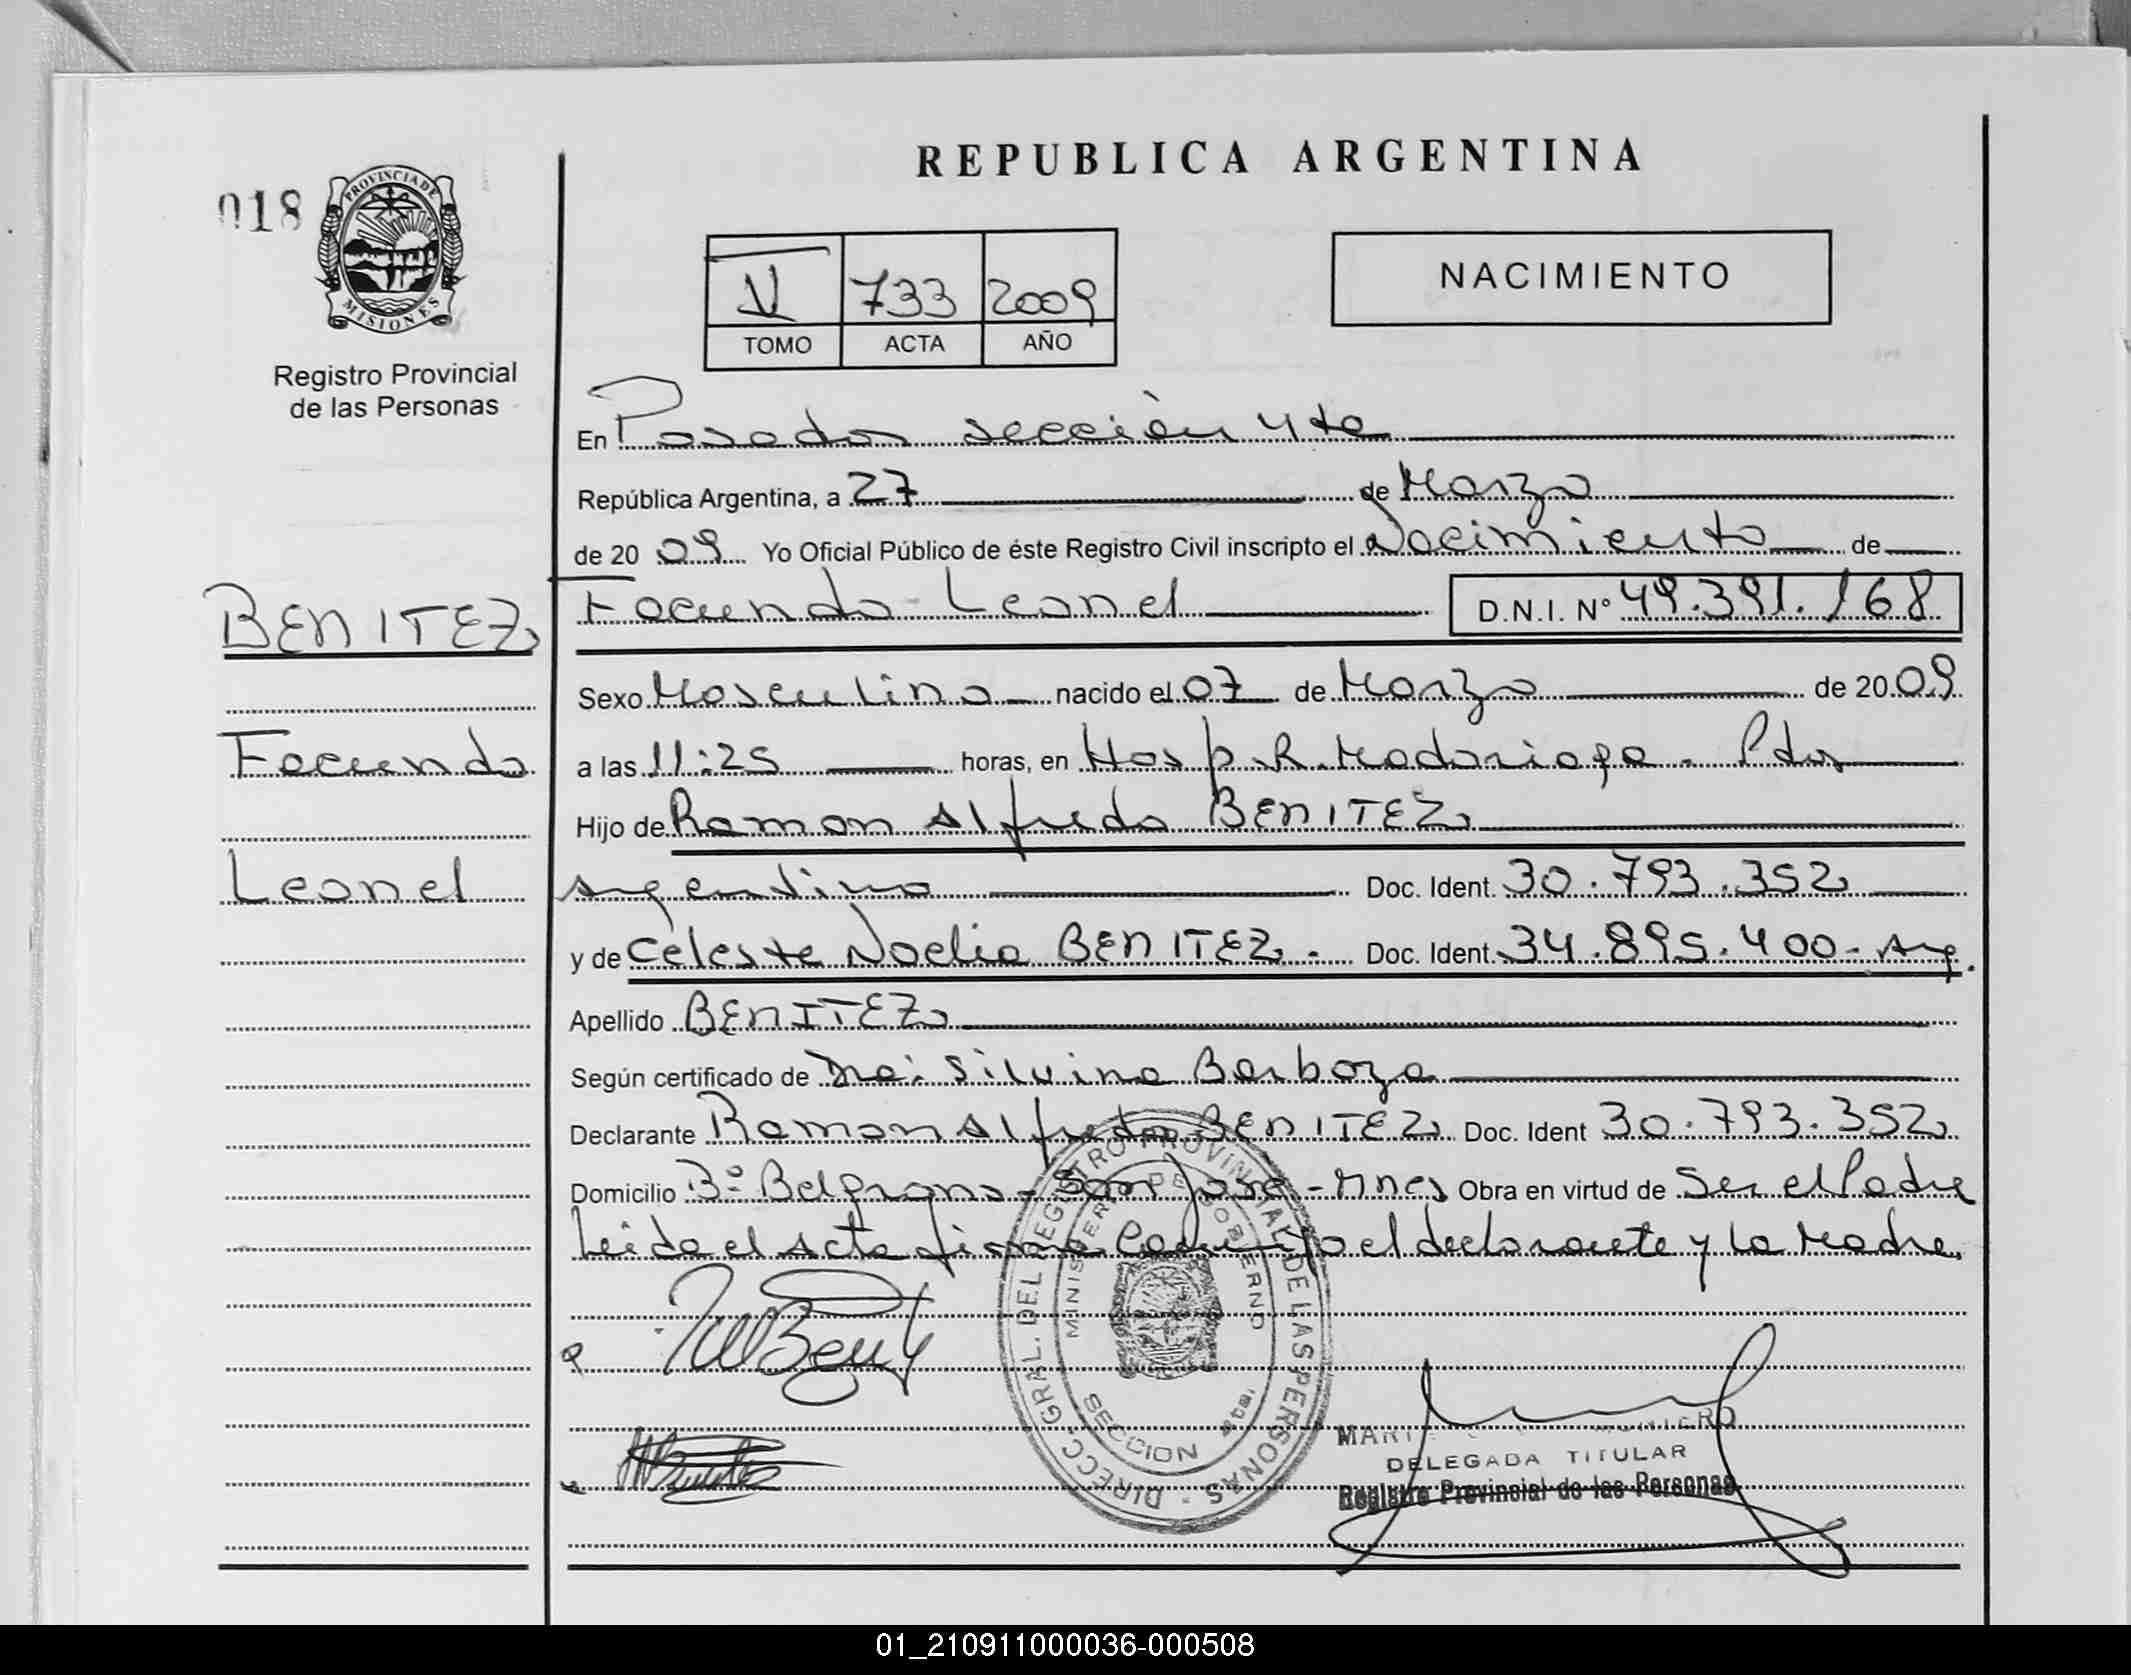 REPUBLICA ARGENTINA
018
PROVINCIA DE
MISIONES
Registro Provincial
de las Personas
NACIMIENTO
733 2009
TOMO ACTA AÑO
En Posadas sección 4ta
República Argentina, a 27 de Marzo
de 2009 Yo Oficial Público de éste Registro Civil inscripto el Nacimiento de
Facundo Leonel D.N.I. Nº 49.391.168
BENITEZ
Facundo
Leonel
Sexo Masculino nacido el 07 de Marzo de 2009
a las 11:25 horas, en Hosp. R. Madariaga. Pdas
Hijo de Ramon Alfredo BENITEZ
Argentino Doc. Ident. 30.793.352
y de Celeste Noelia BENITEZ. Doc. Ident. 34.895.400 - Arg.
Apellido BENITEZ
Según certificado de Dra: Silvina Barboza
Declarante Ramon Alfredo BENITEZ Doc. Ident 30.793.352
Domicilio Bº Belgrano - San José - Mnes Obra en virtud de Ser el Padre
Leida el Acta firma Conmigo el declarante y la Madre.
DIRECC. GRAL. DEL REGISTRO PROVINCIAL DE LAS PERSONAS
MINISTERIO DE GOBIERNO
SECCION
DELEGADA TITULAR
Registro Provincial de las Personas
01_210911000036-000508